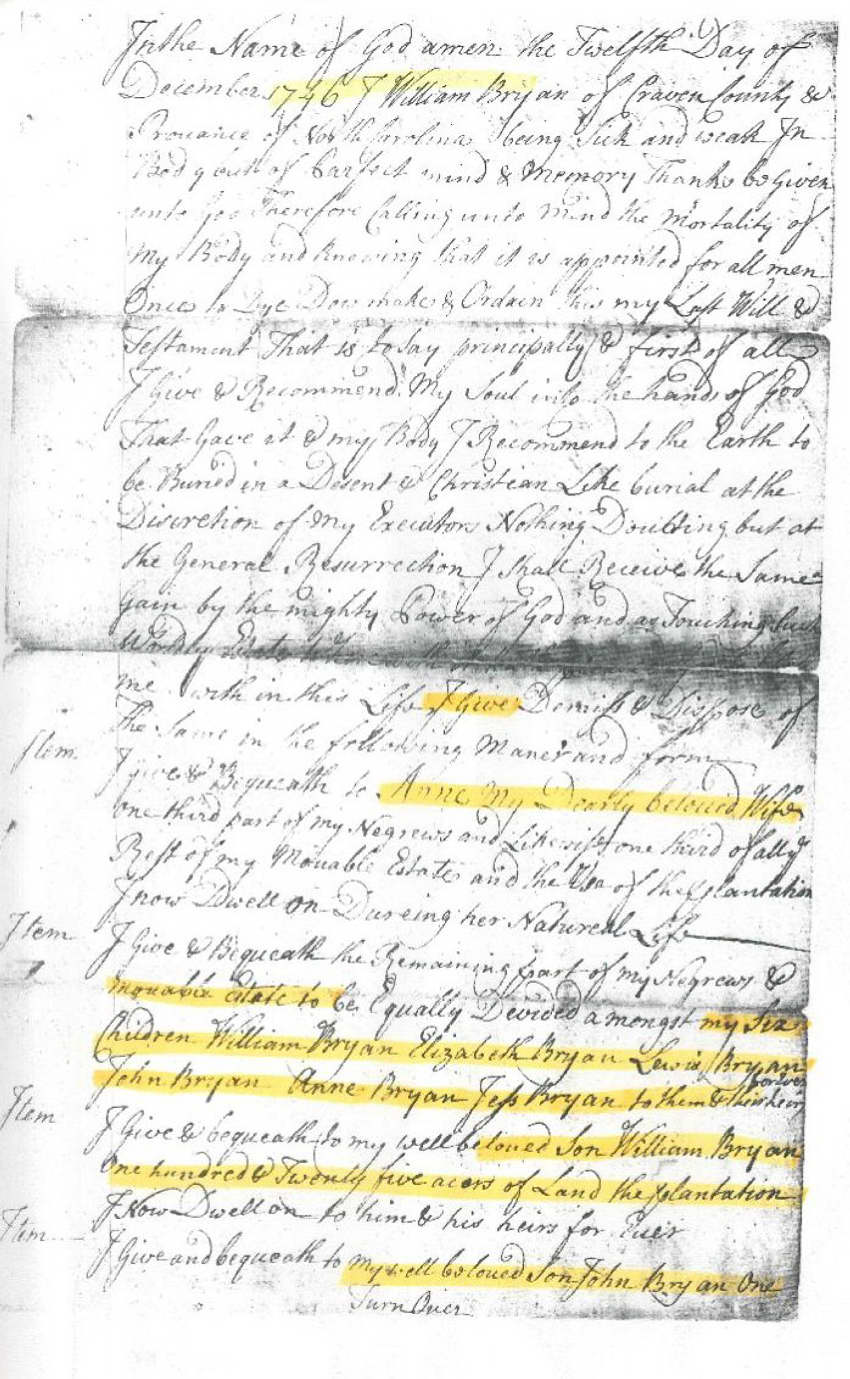 In the Name of God amen the Twelfth Day of
December 1746 I William Bryan of Craven County &
Provance of North Carolina being Sick and weak In
Body but of Parfect mind & Memory Thanks be Given
unto God Therefore Calling unto Mind the Mortality of
My Body and Knowing that it is appointed for all men
Once to Dye Doe make & Ordain this my Last Will &
Testament That is to Say principally & first of all
I Give & Recommend My Soul into the hands of God
That Gave it & my Body I Recommend to the Earth to
be Buried in a Desent & Christian Like burial at the
Discretion of My Executors Nothing Doubting but at
the General Resurrection I Shall Receive the Same
Gain by the mighty Power of God and as Touching Such
Worldly Estate
me with in this Life I Give Demiss & Disspose of
The Same in the following Maner and form
Item I give & Bequeath to Anne My Dearly beloved Wife
one third part of my Negrews and Likewise one third of all ye
Rest of my Movable Estate and the Use of the plantation
I now Dwell on Dureing her Natureal Life
Item I Give & Bequeath the Remaining part of my Negrews &
movable Estate to be Equally Devided amongst my Six
Children William Bryan Elizabeth Bryan Lewis Bryan
John Bryan Anne Bryan Jess Bryan to them & their heirs for Ever
Item I Give & bequeath to my well beloved Son William Bryan
One hundred & Twenty five acers of Land the plantation
I Now Dwell on to him & his heirs for Ever
Item I Give and bequeath to my well beloved Son John Bryan One
Turn Over